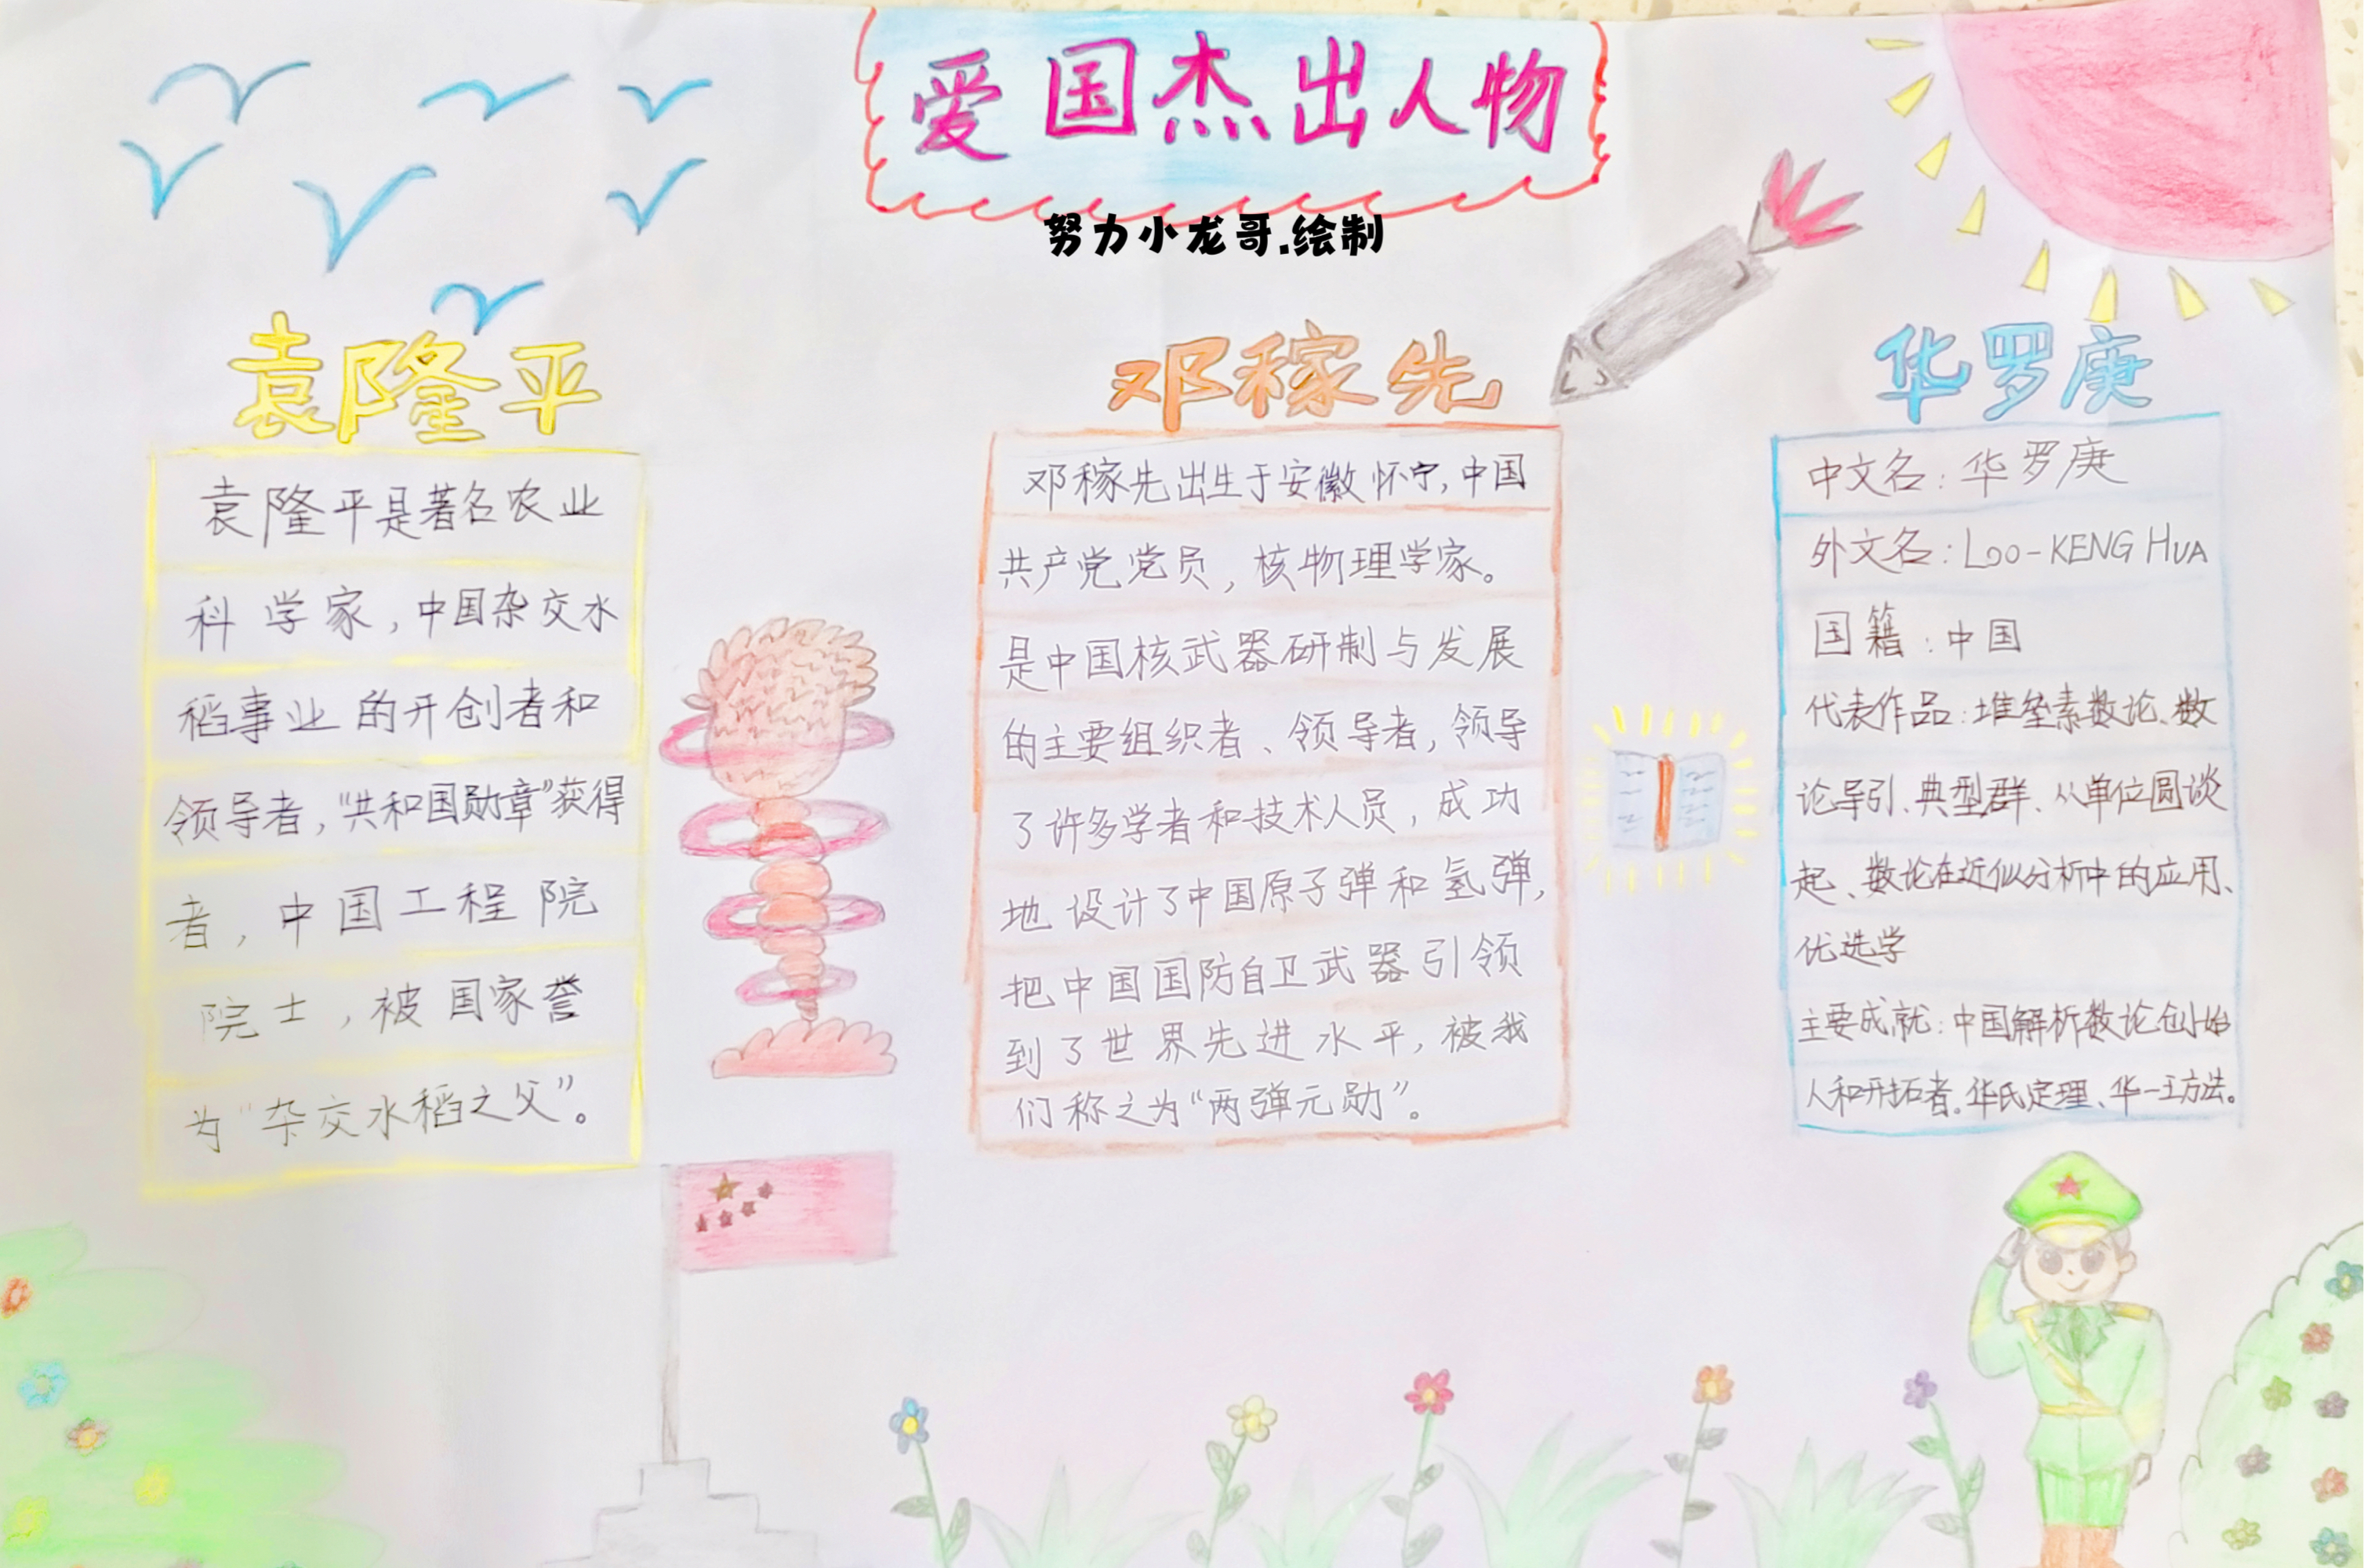 爱国杰出人物
努力小龙哥.绘制
袁隆平
袁隆平是著名农业
科学家,中国杂交水
稻事业的开创者和
领导者,“共和国勋章”获得
者,中国工程院
院士,被国家誉
为“杂交水稻之父”。
邓稼先
邓稼先出生于安徽怀宁,中国
共产党党员,核物理学家。
是中国核武器研制与发展
的主要组织者、领导者,领导
了许多学者和技术人员,成功
地设计了中国原子弹和氢弹,
把中国国防自卫武器引领
到了世界先进水平,被我
们称之为“两弹元勋”。
华罗庚
中文名:华罗庚
外文名:LOO-KENG HUA
国籍:中国
代表作品:堆垒素数论、数
论导引、典型群、从单位圆谈
起、数论在近似分析中的应用、
优选学
主要成就:中国解析数论创始
人和开拓者。华氏定理、华一王方法。